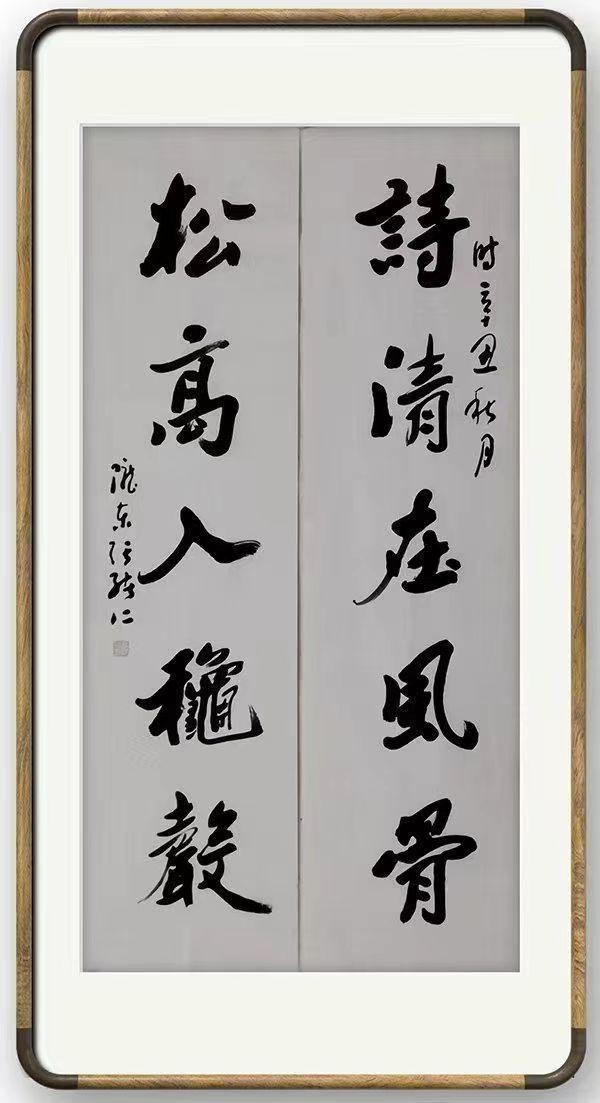 时辛丑秋月
詩清在風骨
松高入龝聲
隴东张仁